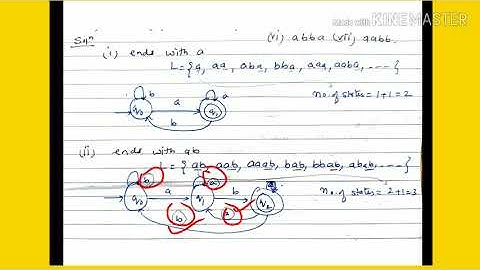 Made with KINEMASTER
Soln
(vi) abba (vii) aabb.
(i) ends with a
L = {a, aa, aba, bba, aaa, aaba, ----}
no. of states = 1+1 = 2
b a
q0 a q1
b
(ii) ends with ab
L = {ab, aab, aaab, bab, bbab, abab, ----}
no. of states = 2+1 = 3
b a
q0 a q1 b q2
b a